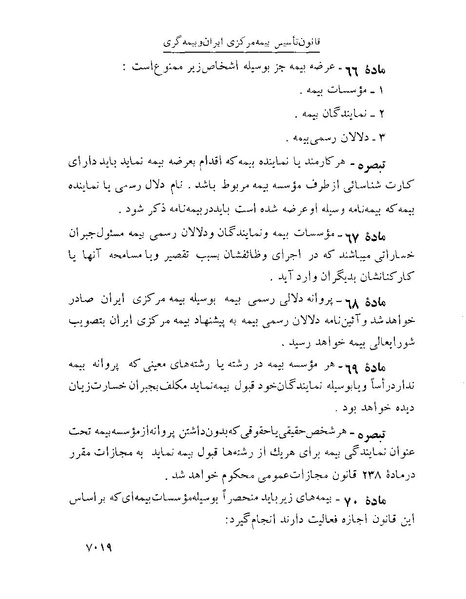 قانون تأسیس بیمه مرکزی ایران و بیمه گری
مادۀ ۶۶ - عرضه بیمه جز بوسیله اشخاص زیر ممنوع است :
۱ - مؤسسات بیمه .
۲ - نمایندگان بیمه .
۳ - دلالان رسمی بیمه .
تبصره - هر کارمند یا نماینده بیمه که اقدام بعرضه بیمه نماید باید دارای
کارت شناسائی از طرف مؤسسه بیمه مربوط باشد . نام دلال رسمی یا نماینده
بیمه که بیمه‌نامه وسیله او عرضه شده است باید در بیمه‌نامه ذکر شود .
مادۀ ۶۷ - مؤسسات بیمه و نمایندگان و دلالان رسمی بیمه مسئول جبران
خساراتی میباشند که در اجرای وظائفشان بسبب تقصیر و یا مسامحه آنها یا
کارکنانشان بدیگران وارد آید .
مادۀ ۶۸ - پروانه دلالی رسمی بیمه بوسیله بیمه مرکزی ایران صادر
خواهد شد و آئین‌نامه دلالان رسمی بیمه به پیشنهاد بیمه مرکزی ایران بتصویب
شورایعالی بیمه خواهد رسید .
مادۀ ۶۹ - هر مؤسسه بیمه در رشته یا رشته‌های معینی که پروانه بیمه
ندارد رأساً و یا بوسیله نمایندگان خود قبول بیمه نماید مکلف بجبران خسارت زیان
دیده خواهد بود .
تبصره - هر شخص حقیقی یا حقوقی که بدون داشتن پروانه از مؤسسه بیمه تحت
عنوان نمایندگی بیمه برای هر یك از رشته‌ها قبول بیمه نماید به مجازات مقرر
در مادۀ ۲۳۸ قانون مجازات عمومی محکوم خواهد شد .
مادۀ ۷۰ - بیمه‌های زیر باید منحصراً بوسیله مؤسسات بیمه‌ای که بر اساس
این قانون اجازه فعالیت دارند انجام گیرد :
۷۰۱۹